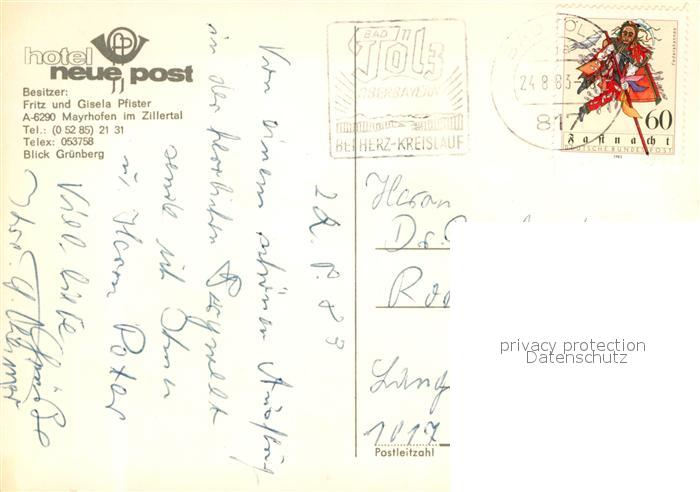 hotel
neue post
Besitzer:
Fritz und Gisela Pfister
A-6290 Mayrhofen im Zillertal
Tel.: (0 52 85) 21 31
Telex: 053758
Blick Grünberg
BAD
Tölz
OBERBAYERN
BEI HERZ-KREISLAUF
24.8.83
817
60
Fastnacht
DEUTSCHE BUNDESPOST
1983
24. 8. 83
Von einem schönen Ausflug
in der herrlichen Bergwelt
sende ich Ihnen
u. Herrn Peter
Viele liebe
Grüße
Herrn
Dr.
Lang
1017
Postleitzahl
privacy protection
Datenschutz